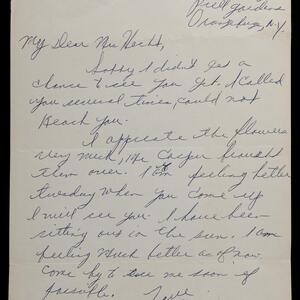 Dell Gardens
Orangeburg, N.Y.
My Dear Mr Hecht,
Sorry I didn't get a
chance to see you yet. I called
you several times, could not
Reach you.
I appicate the flowers
very much, Mr Casper brought
them over. I am feeling better
tuesday when you come up
I will see you. I have been
sitting out in the sun. I am
feeling Much better as of now.
come by to see me soon if
possible.